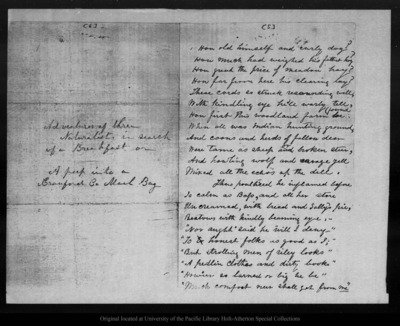 C53
C53
Adventures of three
Naturalists in search
of a Breakfast or
A peep into a
Crawford Co Marl Bay
How old himself and curly dog?
How much had weighed his fattest hog
How great the price of meadow hay?
How far from here his clearing lay?
These cords so struck resounding will
With kindling eye he'll early tell,
How first this woodland farm he found
When all was Indian hunting ground,
And coons and herds of fallow deer
Were tame as sheep and broken steer,
And howling wolf and savage yell
Mixed all the echos of the dell.
Thus
he inflamed before
Is calm as
and all her store
Uncreamed, with bread and
pies,
Bestows with kindly beaming eyes. –
"Nor aught" said he will I deny
"To honest folks as good as I; –
"But strolling men of
looks"
"A pedlin clothes and dirty books"
"However learned or big he be"
"Much comfort never shall get from me"
Original located at University of the Pacific Library Holt-Atherton Special Collections